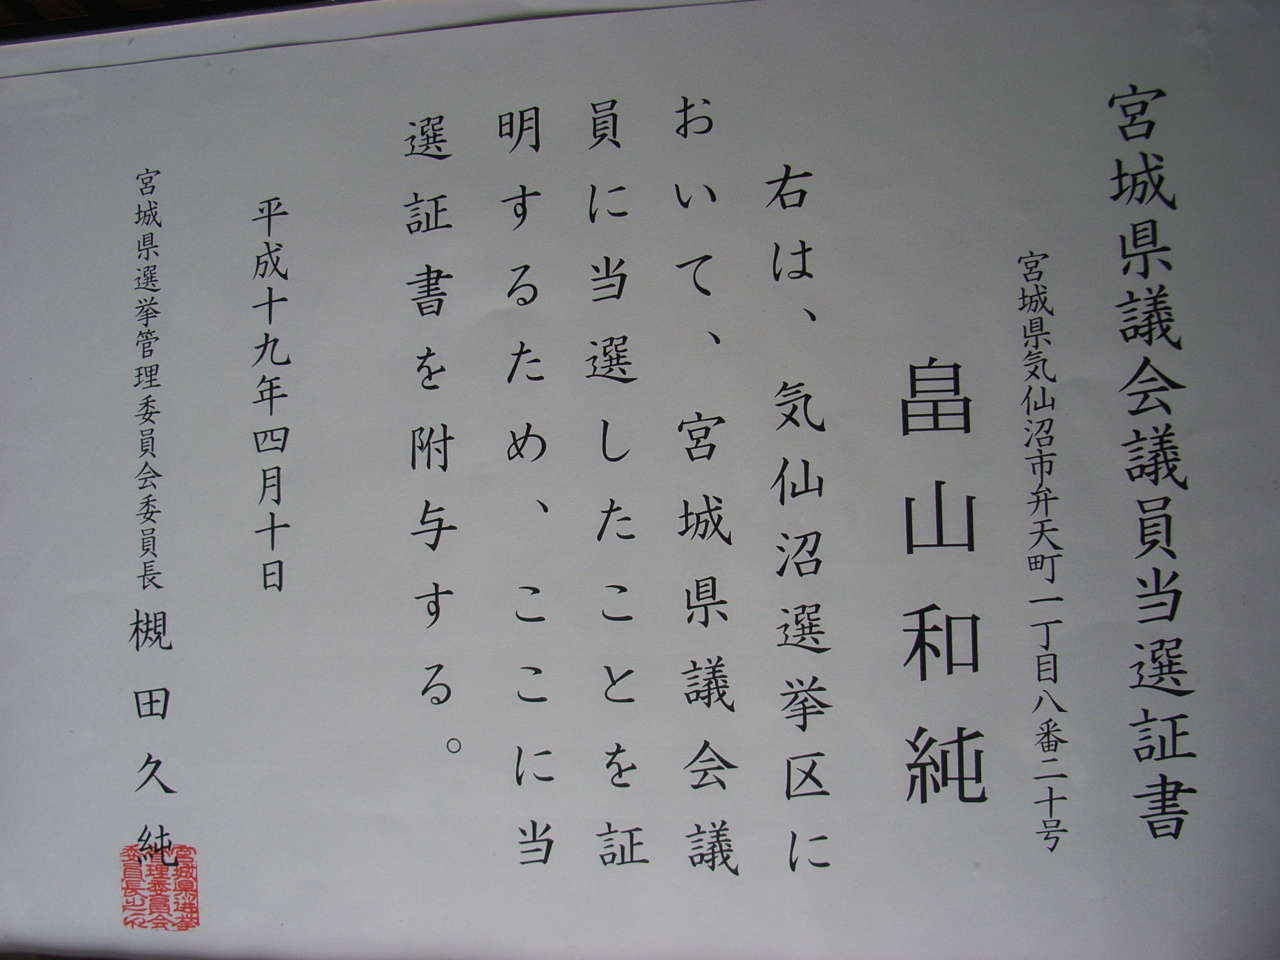 宮城県議会議員当選証書
宮城県気仙沼市弁天町一丁目八番二十号
畠山和純
右は、気仙沼選挙区に
おいて、宮城県議会議
員に当選したことを証
明するため、ここに当
選証書を附与する。
平成十九年四月十日
宮城県選挙管理委員会委員長 槻田久純
宮城県選挙
管理委員会
委員長之印